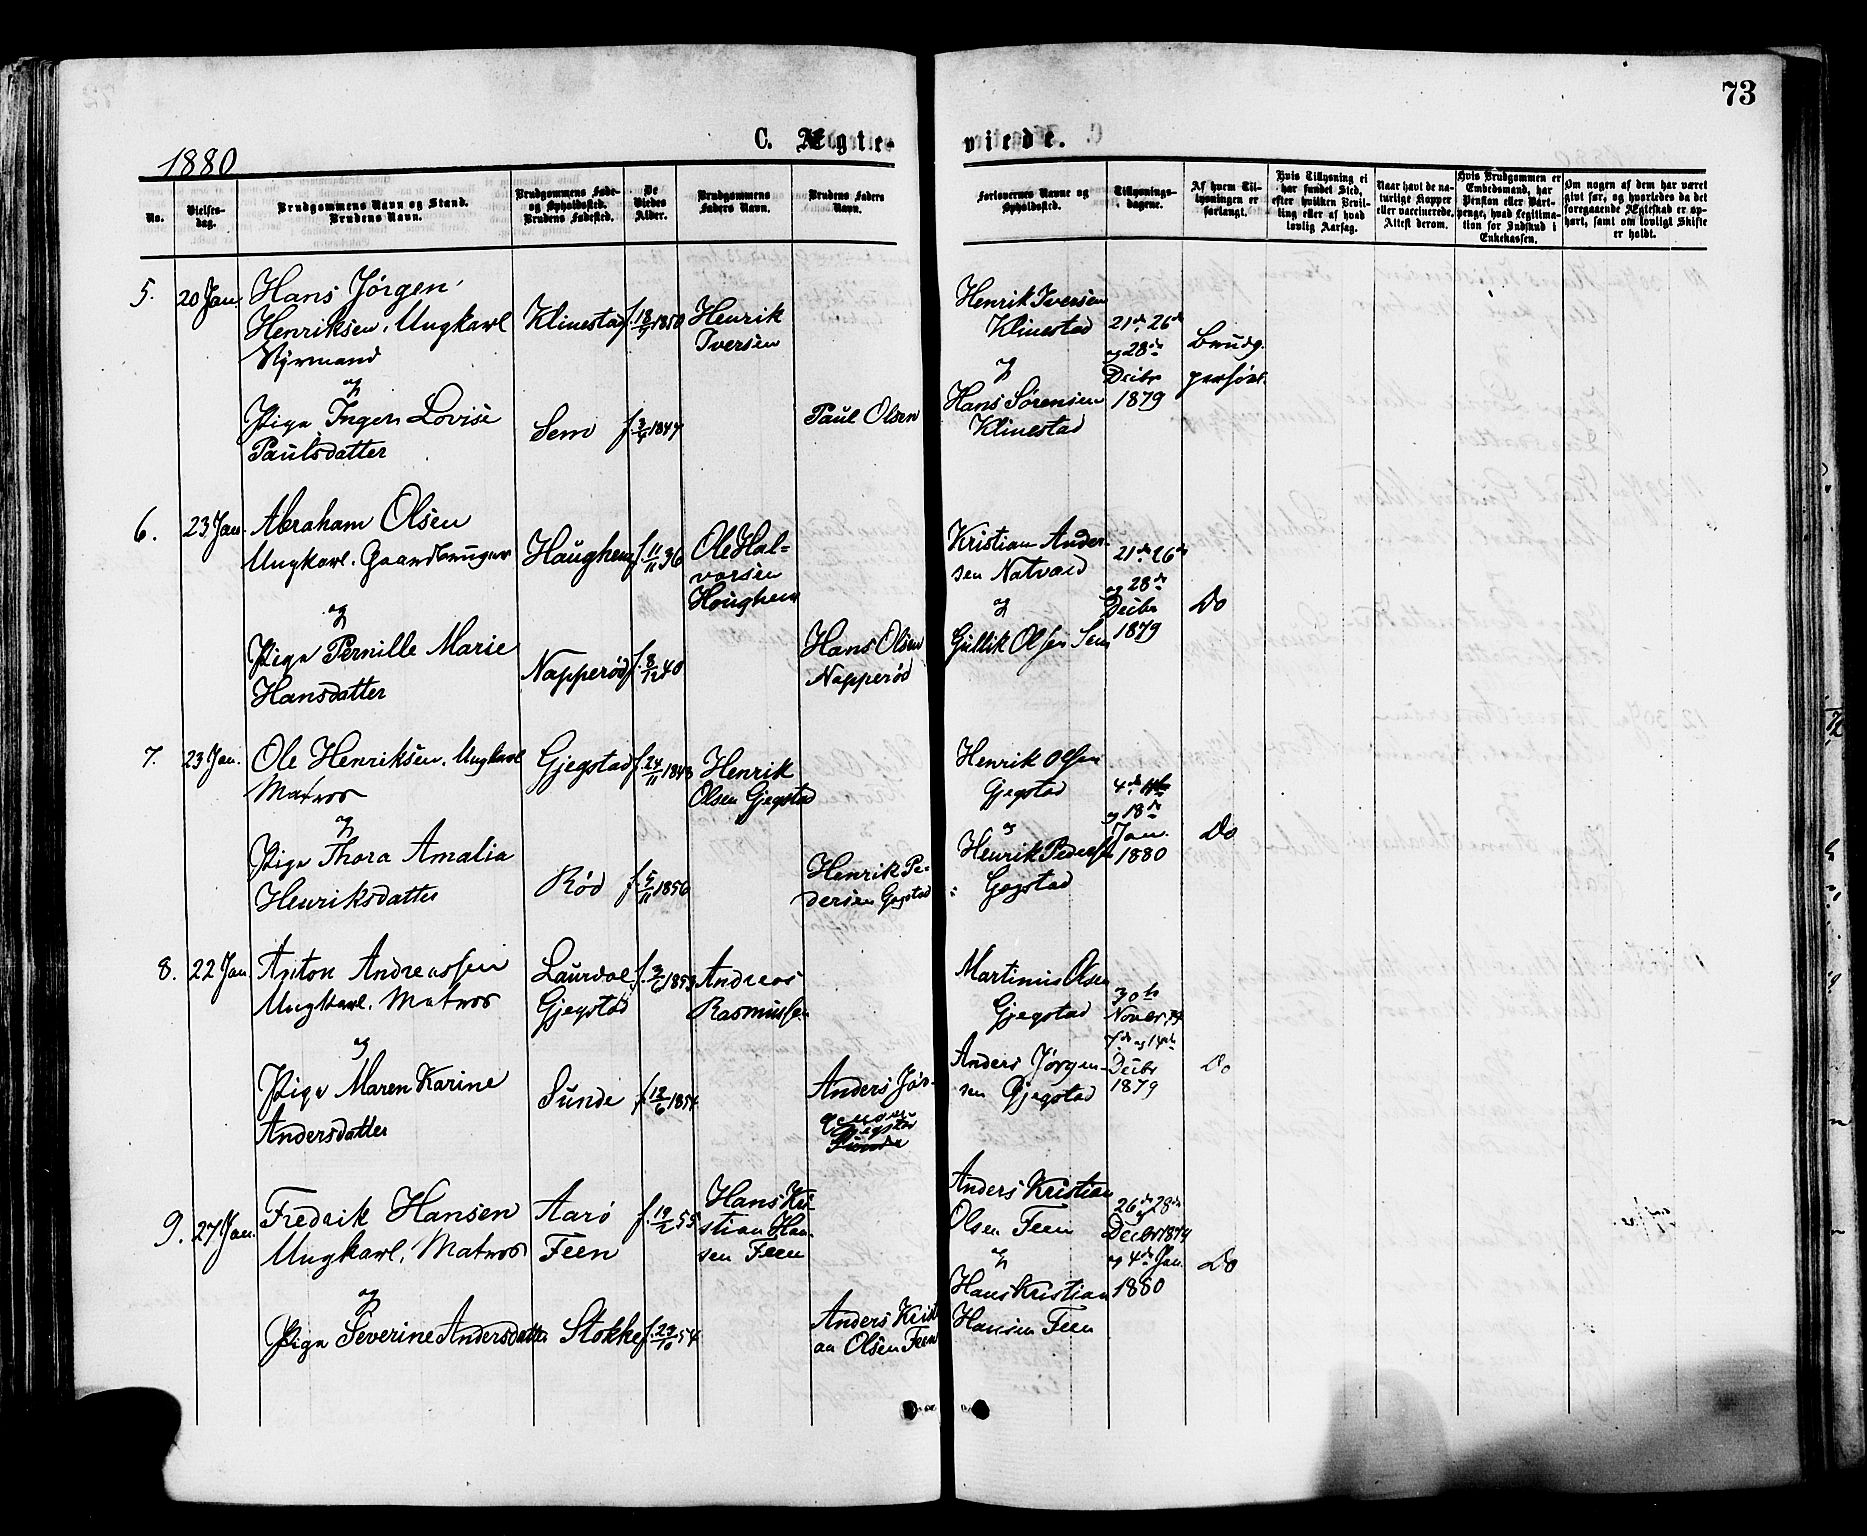 73
C. Ægte-
viede.
1880
No.
Vielses-
dag.
Brudgommens Navn og Stand.
Brudens Navn.
Brudgommens Føde-
og Opholdssted.
Brudens Fødested.
De
Viedes
Alder.
Brudgommens
Faders Navn.
Brudens Faders
Navn.
Forlovernes Navne og
Opholdssted.
Tillysnings-
dagene.
Af hvem Til-
lysningen er
forlangt.
Hvis Tillysning ei
har fundet Sted,
efter hvilken Bevil-
ling eller af hvad
lovlig Aarsag.
Naar havt de na-
turlige Kopper
eller vaccinerede.
Attest derom.
Hvis Brudgommen er
Embedsmand, har
Pension eller Vart-
penge, hvad Legitima-
tion for Indskud i
Enkekassen.
Om nogen af dem har været
givt før, og hvorledes da det
foregaaende Ægteskab er op-
hørt, samt om lovligt Skifte
er holdt.
5.
20 Jan.
Hans Jørgen
Henriksen, Ungkarl
Styrmand
og
Pige Inger Lovise
Paulsdatter
Klinestad
Sem
f. 18/9 1850
f. 3/4 1847
Henrik
Iversen
Paul Olsen
Henrik Iversen
Klinestad
og
Hans Sørensen
Klinestad
21de, 26de
og 28de
Decbr
1879
Brudg.
personl.
6.
23 Jan.
Abraham Olsen
Ungkarl. Gaardbruger
og
Pige Pernille Marie
Hansdatter
Haughem
Napperød
f. 11/11 36
f. 8/12 40
Ole Hal-
vorsen
Houghem
Hans Olsen
Napperød
Kristian Ander-
sen Natvald
og
Gullik Olsen Sem
21de 26de
og 28de
Decbr
1879
Do
7.
23 Jan.
Ole Henriksen. Ungkarl
Matros
og
Pige Thora Amalia
Henriksdatter
Gjegstad
Rød
f. 24/11 1848
f. 5/11 1856
Henrik
Olsen Gjegstad
Henrik Pe-
dersen Gogstad
Henrik Olsen
Gjegstad
og
Henrik Pedersen
Gogstad
4de 11te
og 18de
Jan.
1880
Do
8.
22 Jan
Anton Andreassen
Ungkarl. Matros
og
Pige Maren Karine
Andersdatter
Laurdal
Gjegstad
Sunde
f. 3/6 1853
f. 12/6 1854
Andreas
Rasmussen
Anders Jør-
gensen
Gjegstad
Sunde
Martinius Olsen
Gjegstad
Anders Jørgen-
sen Gjegstad
30te
Novbr 79
7de og 14de
Decbr
1879
Do
9.
27 Jan.
Fredrik Hansen
Ungkarl, Matros
og
Pige Severine Andersdatter
Aarø
Feen
Stokke
f. 19/2 55
f. 29/10 54
Hans Kri-
stian Han-
sen Feen
Anders Kristi
an Olsen Feen
Anders Kristian
Olsen Feen
og
Hans Kristian
Hansen Feen
26de og 28de
Decbr 1879
og 4de Jan.
1880
Do